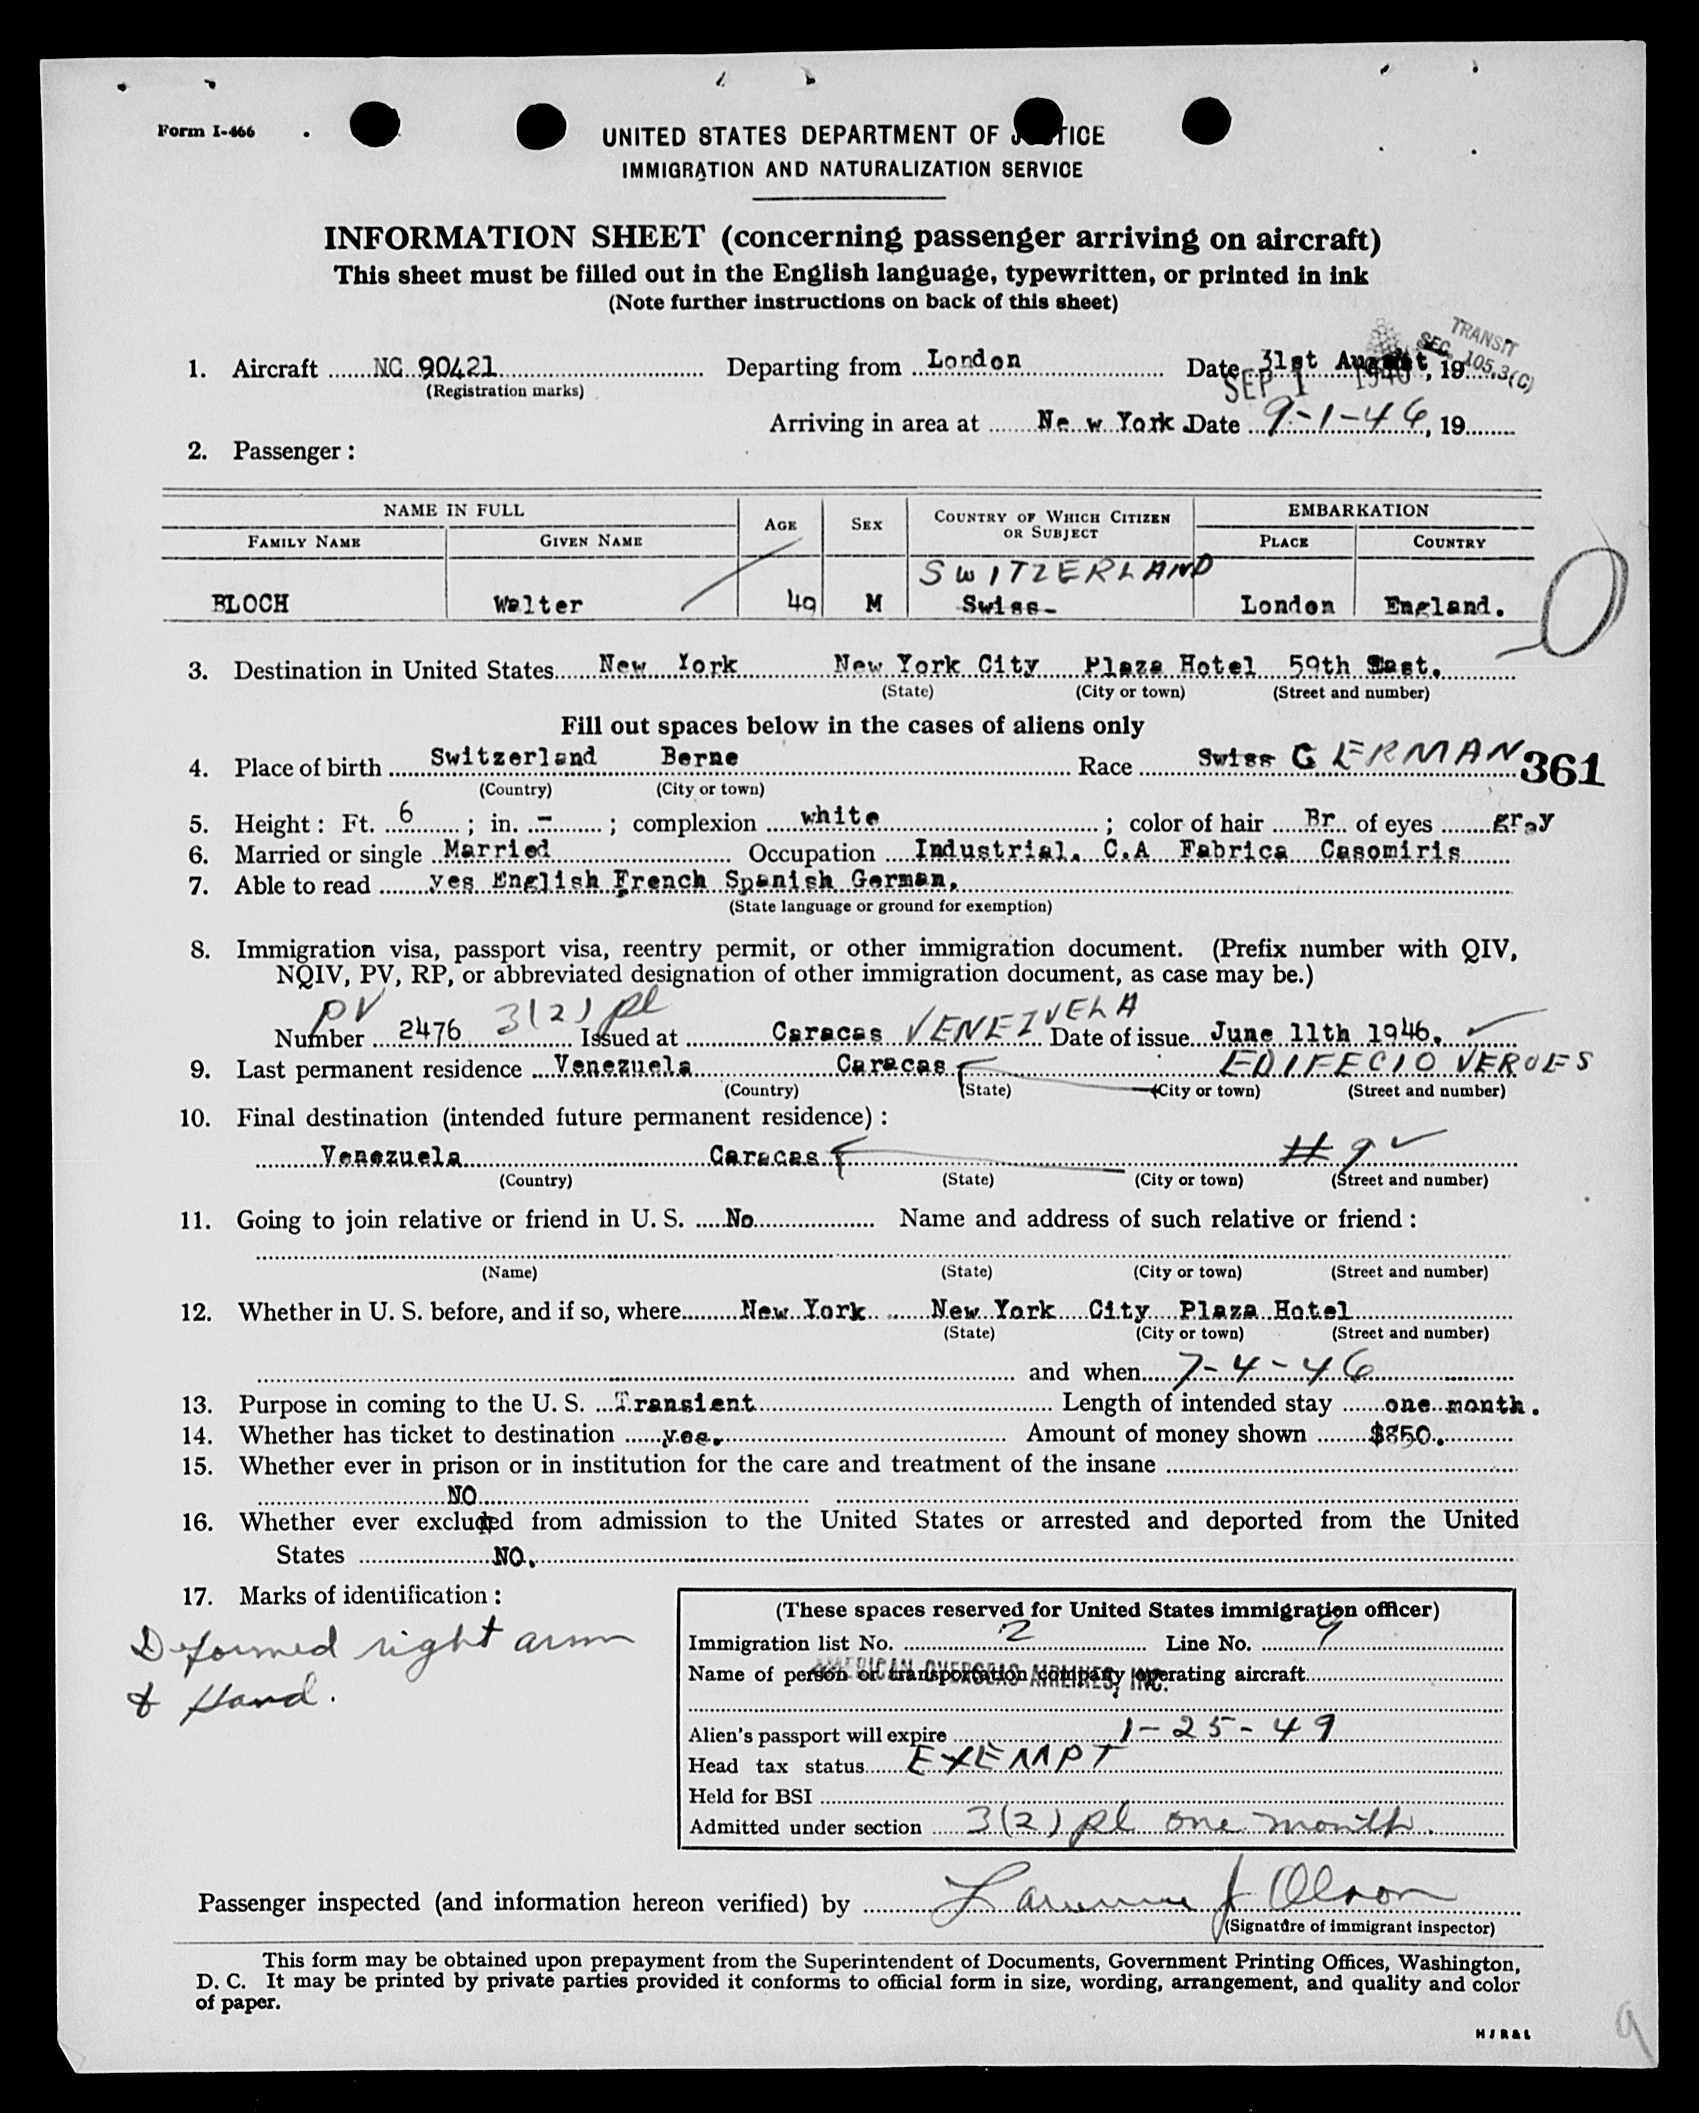 Form I-466
UNITED STATES DEPARTMENT OF JUSTICE
IMMIGRATION AND NATURALIZATION SERVICE
INFORMATION SHEET (concerning passenger arriving on aircraft)
This sheet must be filled out in the English language, typewritten, or printed in ink
(Note further instructions on back of this sheet)
TRANSIT
SEC. 105.3(C)
1. Aircraft NC 90421 Departing from London Date 31st August, 19
(Registration marks)
SEP 1 1946
Arriving in area at New York Date 9-1-46, 19
2. Passenger:
NAME IN FULL AGE SEX COUNTRY OF WHICH CITIZEN OR SUBJECT EMBARKATION
FAMILY NAME GIVEN NAME PLACE COUNTRY
SWITZERLAND
BLOCH Walter 49 M Swiss- London England.
3. Destination in United States New York New York City Plaza Hotel 59th East.
(State) (City or town) (Street and number)
Fill out spaces below in the cases of aliens only
4. Place of birth Switzerland Berne Race Swiss GERMAN 361
(Country) (City or town)
5. Height: Ft. 6; in. -; complexion white; color of hair Br. of eyes gray
6. Married or single Married Occupation Industrial. C.A Fabrica Casomiris
7. Able to read yes English French Spanish German.
(State language or ground for exemption)
8. Immigration visa, passport visa, reentry permit, or other immigration document. (Prefix number with QIV,
NQIV, PV, RP, or abbreviated designation of other immigration document, as case may be.)
PV 3(2) pl
Number 2476 Issued at Caracas VENEZUELA Date of issue June 11th 1946.
9. Last permanent residence Venezuela Caracas EDIFECIO VEROES
(Country) (State) (City or town) (Street and number)
10. Final destination (intended future permanent residence):
Venezuela Caracas # 9
(Country) (State) (City or town) (Street and number)
11. Going to join relative or friend in U. S. No Name and address of such relative or friend:
(Name) (State) (City or town) (Street and number)
12. Whether in U. S. before, and if so, where New York New York City Plaza Hotel
(State) (City or town) (Street and number)
and when 7-4-46
13. Purpose in coming to the U. S. Transient Length of intended stay one month.
14. Whether has ticket to destination yes. Amount of money shown $850.
15. Whether ever in prison or in institution for the care and treatment of the insane
NO
16. Whether ever excluded from admission to the United States or arrested and deported from the United
States NO.
17. Marks of identification:
Deformed right arm
& Hand.
(These spaces reserved for United States immigration officer)
Immigration list No. 2 Line No. 9
Name of person or transportation company operating aircraft
AMERICAN OVERSEAS AIRLINES, INC.
Alien's passport will expire 1-25-49
Head tax status EXEMPT
Held for BSI
Admitted under section 3(2) pl one month.
Passenger inspected (and information hereon verified) by Lawrence J Olson
(Signature of immigrant inspector)
This form may be obtained upon prepayment from the Superintendent of Documents, Government Printing Offices, Washington,
D. C. It may be printed by private parties provided it conforms to official form in size, wording, arrangement, and quality and color
of paper.
9